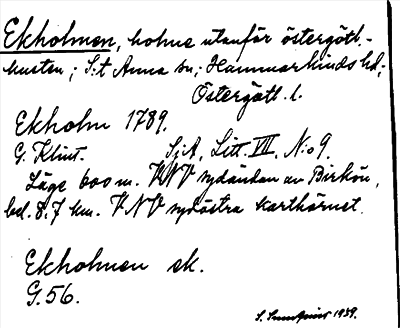 Ekholmen, holme utanför östergötl.-
kusten; S:t Anna sn; Hammarkinds hd;
Östergötl. l.
Ekholm 1789.
G. Klint. SjA, Litt. VII, N:o 9.
Läge 600 m. VNV sydändan av Birkön,
bel. 8,7 km. VNV sydöstra karthörnet.
Ekholmen sk.
G. 56.
S. 1939.